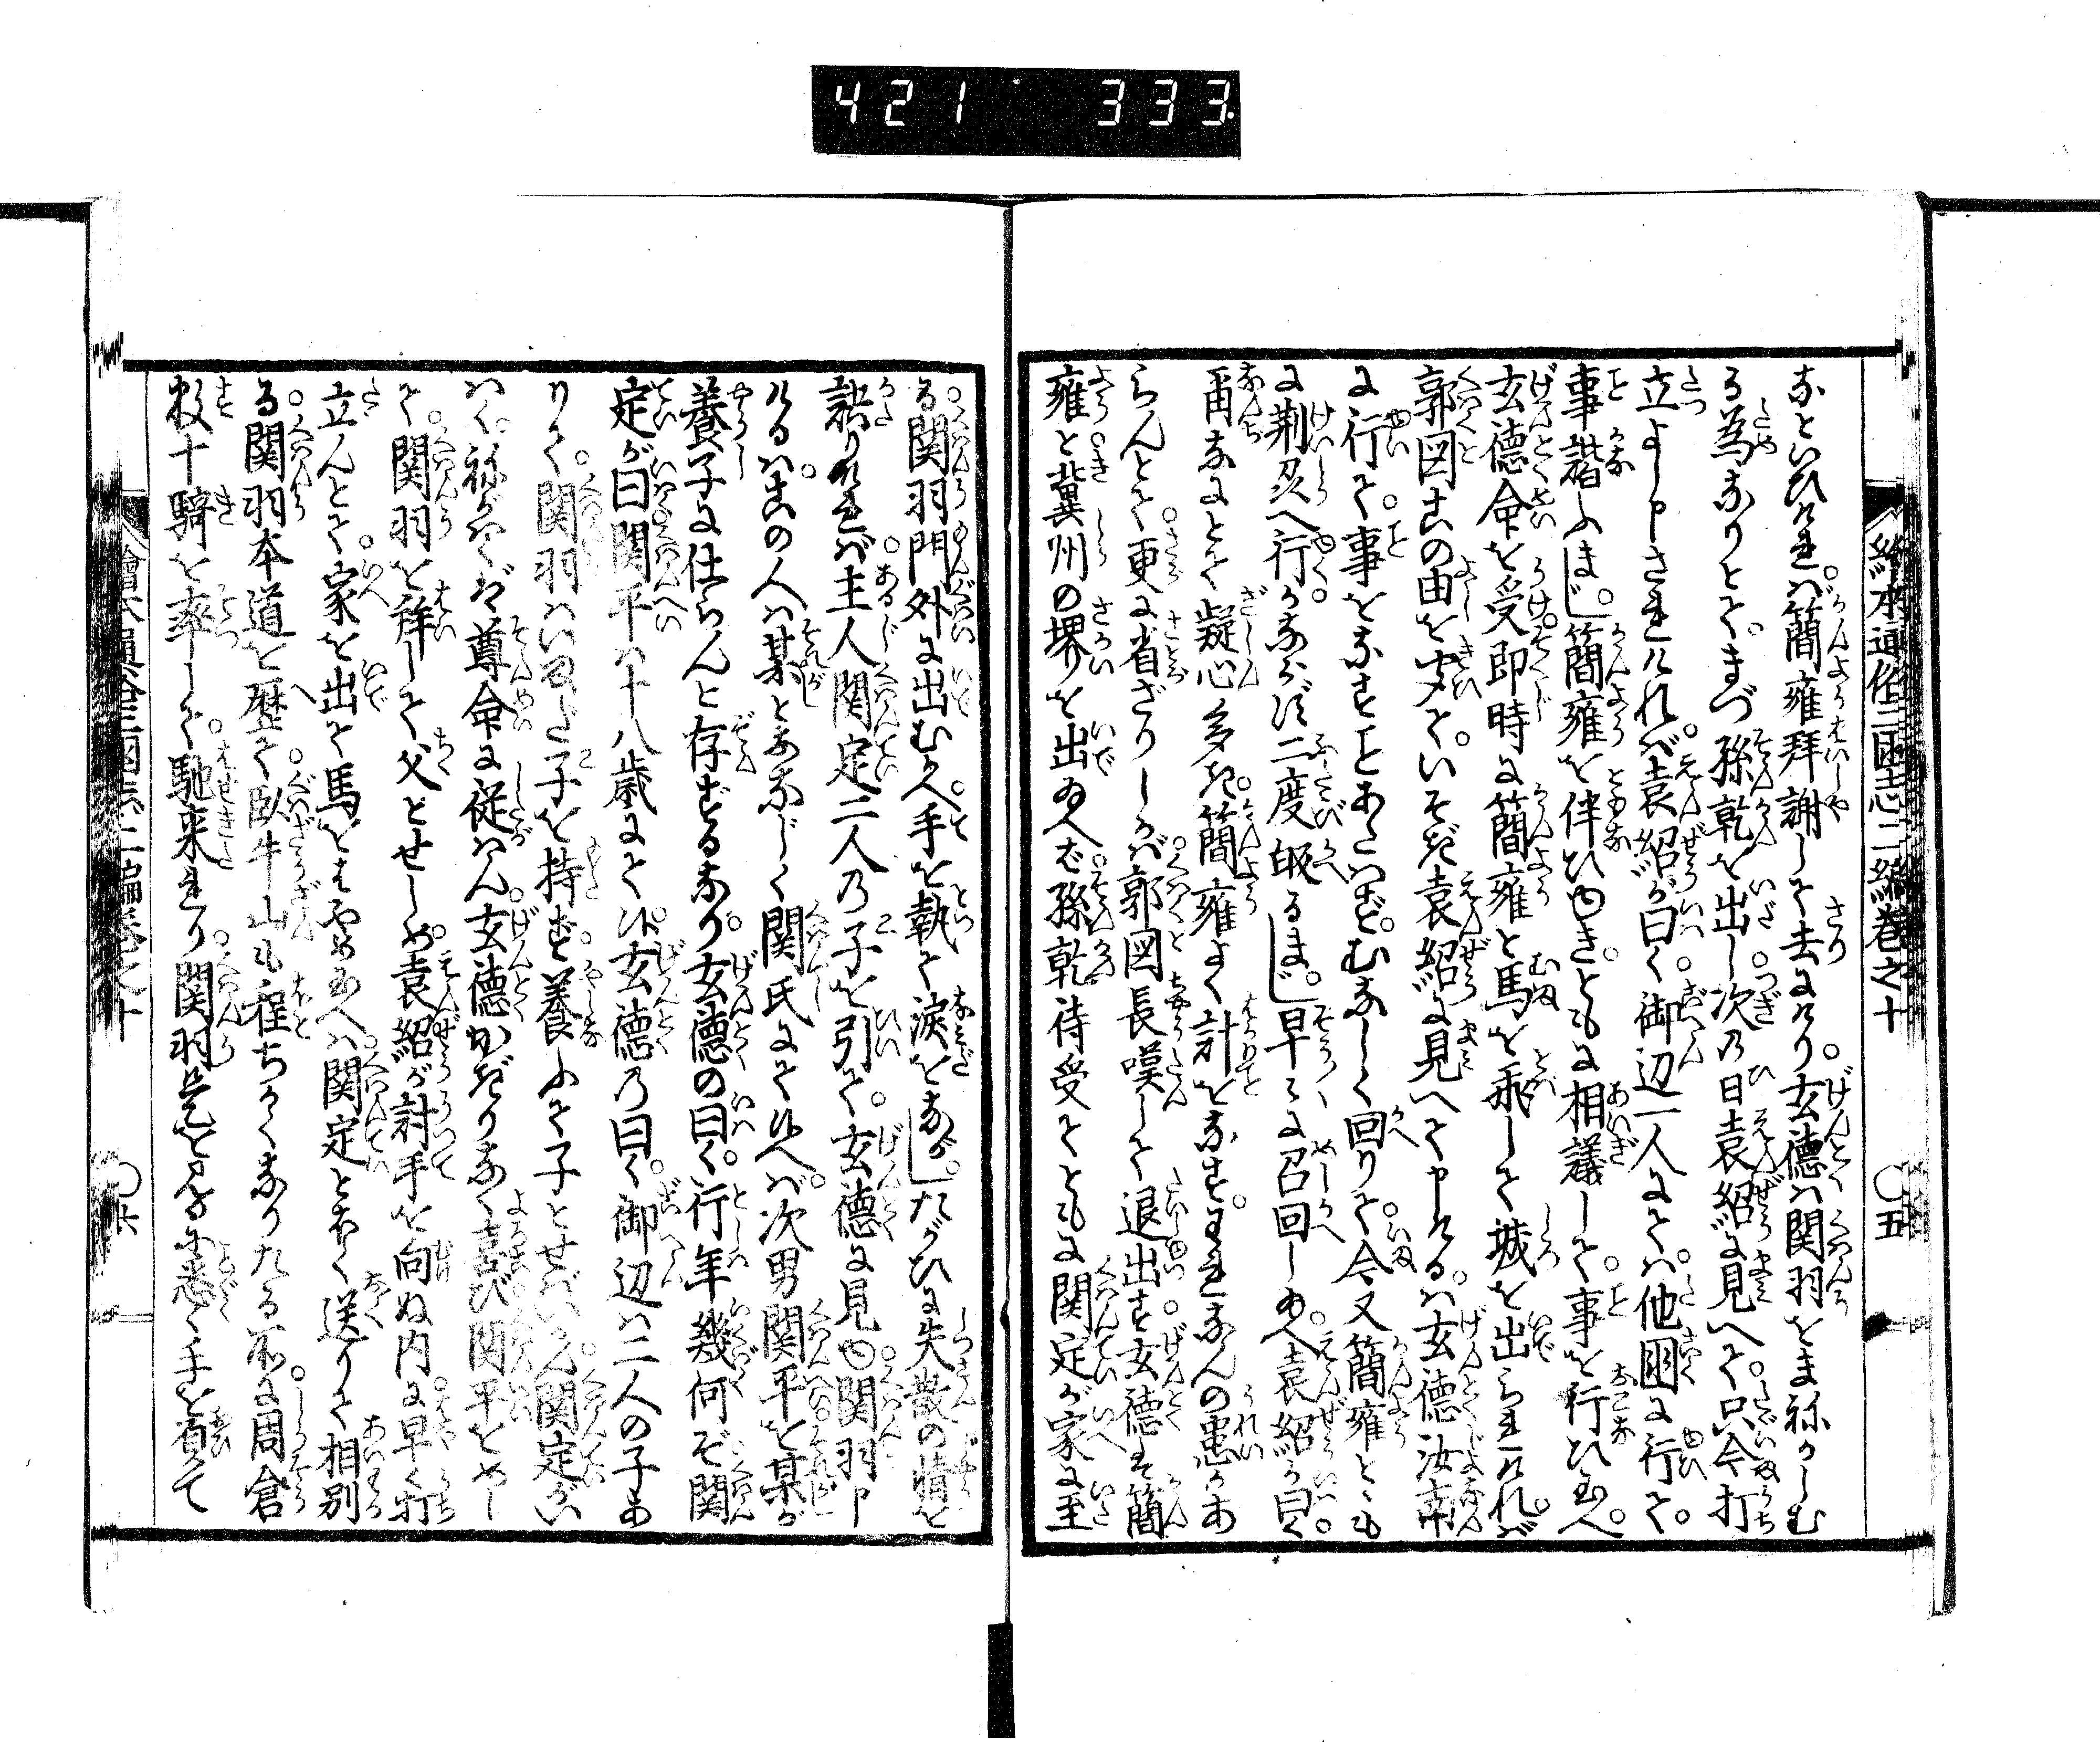 421 333
絵本通俗三国志二編巻之十 〇五
なといひければ。簡雍拝謝して去にけり。玄徳は関羽をまねかしむ
る為なりとて。まづ孫乾を出し次の日袁紹に見へて。只今打
立よし申されければ。袁紹が曰く御辺一人にては。他国に行て。
事諧ふまじ。簡雍を伴ひゆき。ともに相議して。事を行ひ玉へ。
玄徳命を受即時に簡雍と馬を飛して城を出られければ。
郭図此の由を聞て。いそぎ袁紹に見へて申けるは。玄徳汝南
に行て。事をなすことあたはず。むなしく回りて。今又簡雍とゝも
に荊州へ行かならず二度皈るまじ。早々に召回し給へ。袁紹が曰く
爾なにとて疑心多き。簡雍よく計をなす。われなんの患かあ
らんとて。更に省ざりしかば郭図長嘆して退出す玄徳は簡
雍と冀州の堺を出玉へば。孫乾待受てともに関定が家に至
る関羽門外に出むかへ。手を執て涙をながし。たがひに失散の情を
訣りければ。主人関定二人の子を引て。玄徳に見ゆ。関羽申
けるは。此の人は某とおなじく関氏にて候へば。次男関平を某が
養子に仕らんと存ずるなり。玄徳の曰く。行年幾何ぞ関
定が曰関平は十八歳にて候。玄徳の曰く。御辺は二人の子あ
りて。関羽はいまだ子を持ず。養ふて子とせばいかん。関定がい
はく。ねがはくば尊命に従はん。玄徳かぎりなく喜び関平をめし
て。関羽を拝して父とせしめ。袁紹が討手を向ぬ内に早く打
立んとて。家を出て馬をはやめ玉へば。関定とほく送りて相別
る。関羽本道を歴て。臥牛山も程ちかくなりたる所に周倉
数十騎を率して。馳来れり。関羽是を見るに悉く手を負て
絵本通俗三国志二編巻之十 〇六